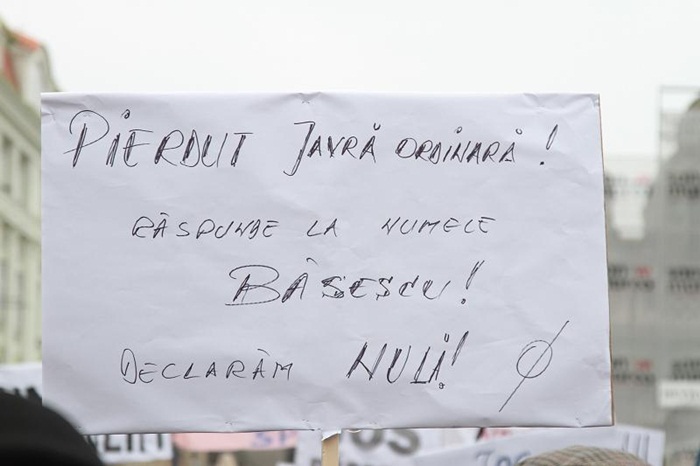 PIERDUT JAVRĂ ORDINARĂ!
RĂSPUNDE LA NUMELE
BĂSESCU!
DECLARĂM NULĂ! Ø